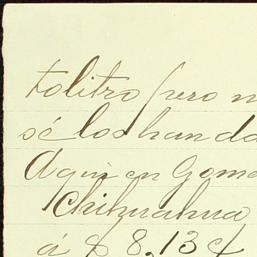 tolitro pero n
sé los han da
Aqui en Gome
Chihuahua
á $ 8.13 ct